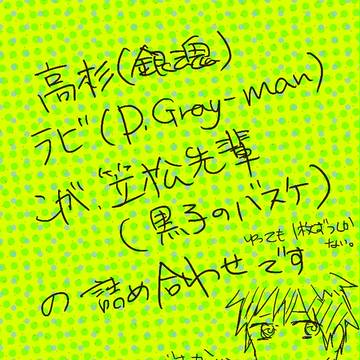 高杉(銀魂)
ラビ(D.Gray-man)
笠松先輩
(黒子のバスケ)
の詰め合わせです
いっても1枚ずつしか
ない。